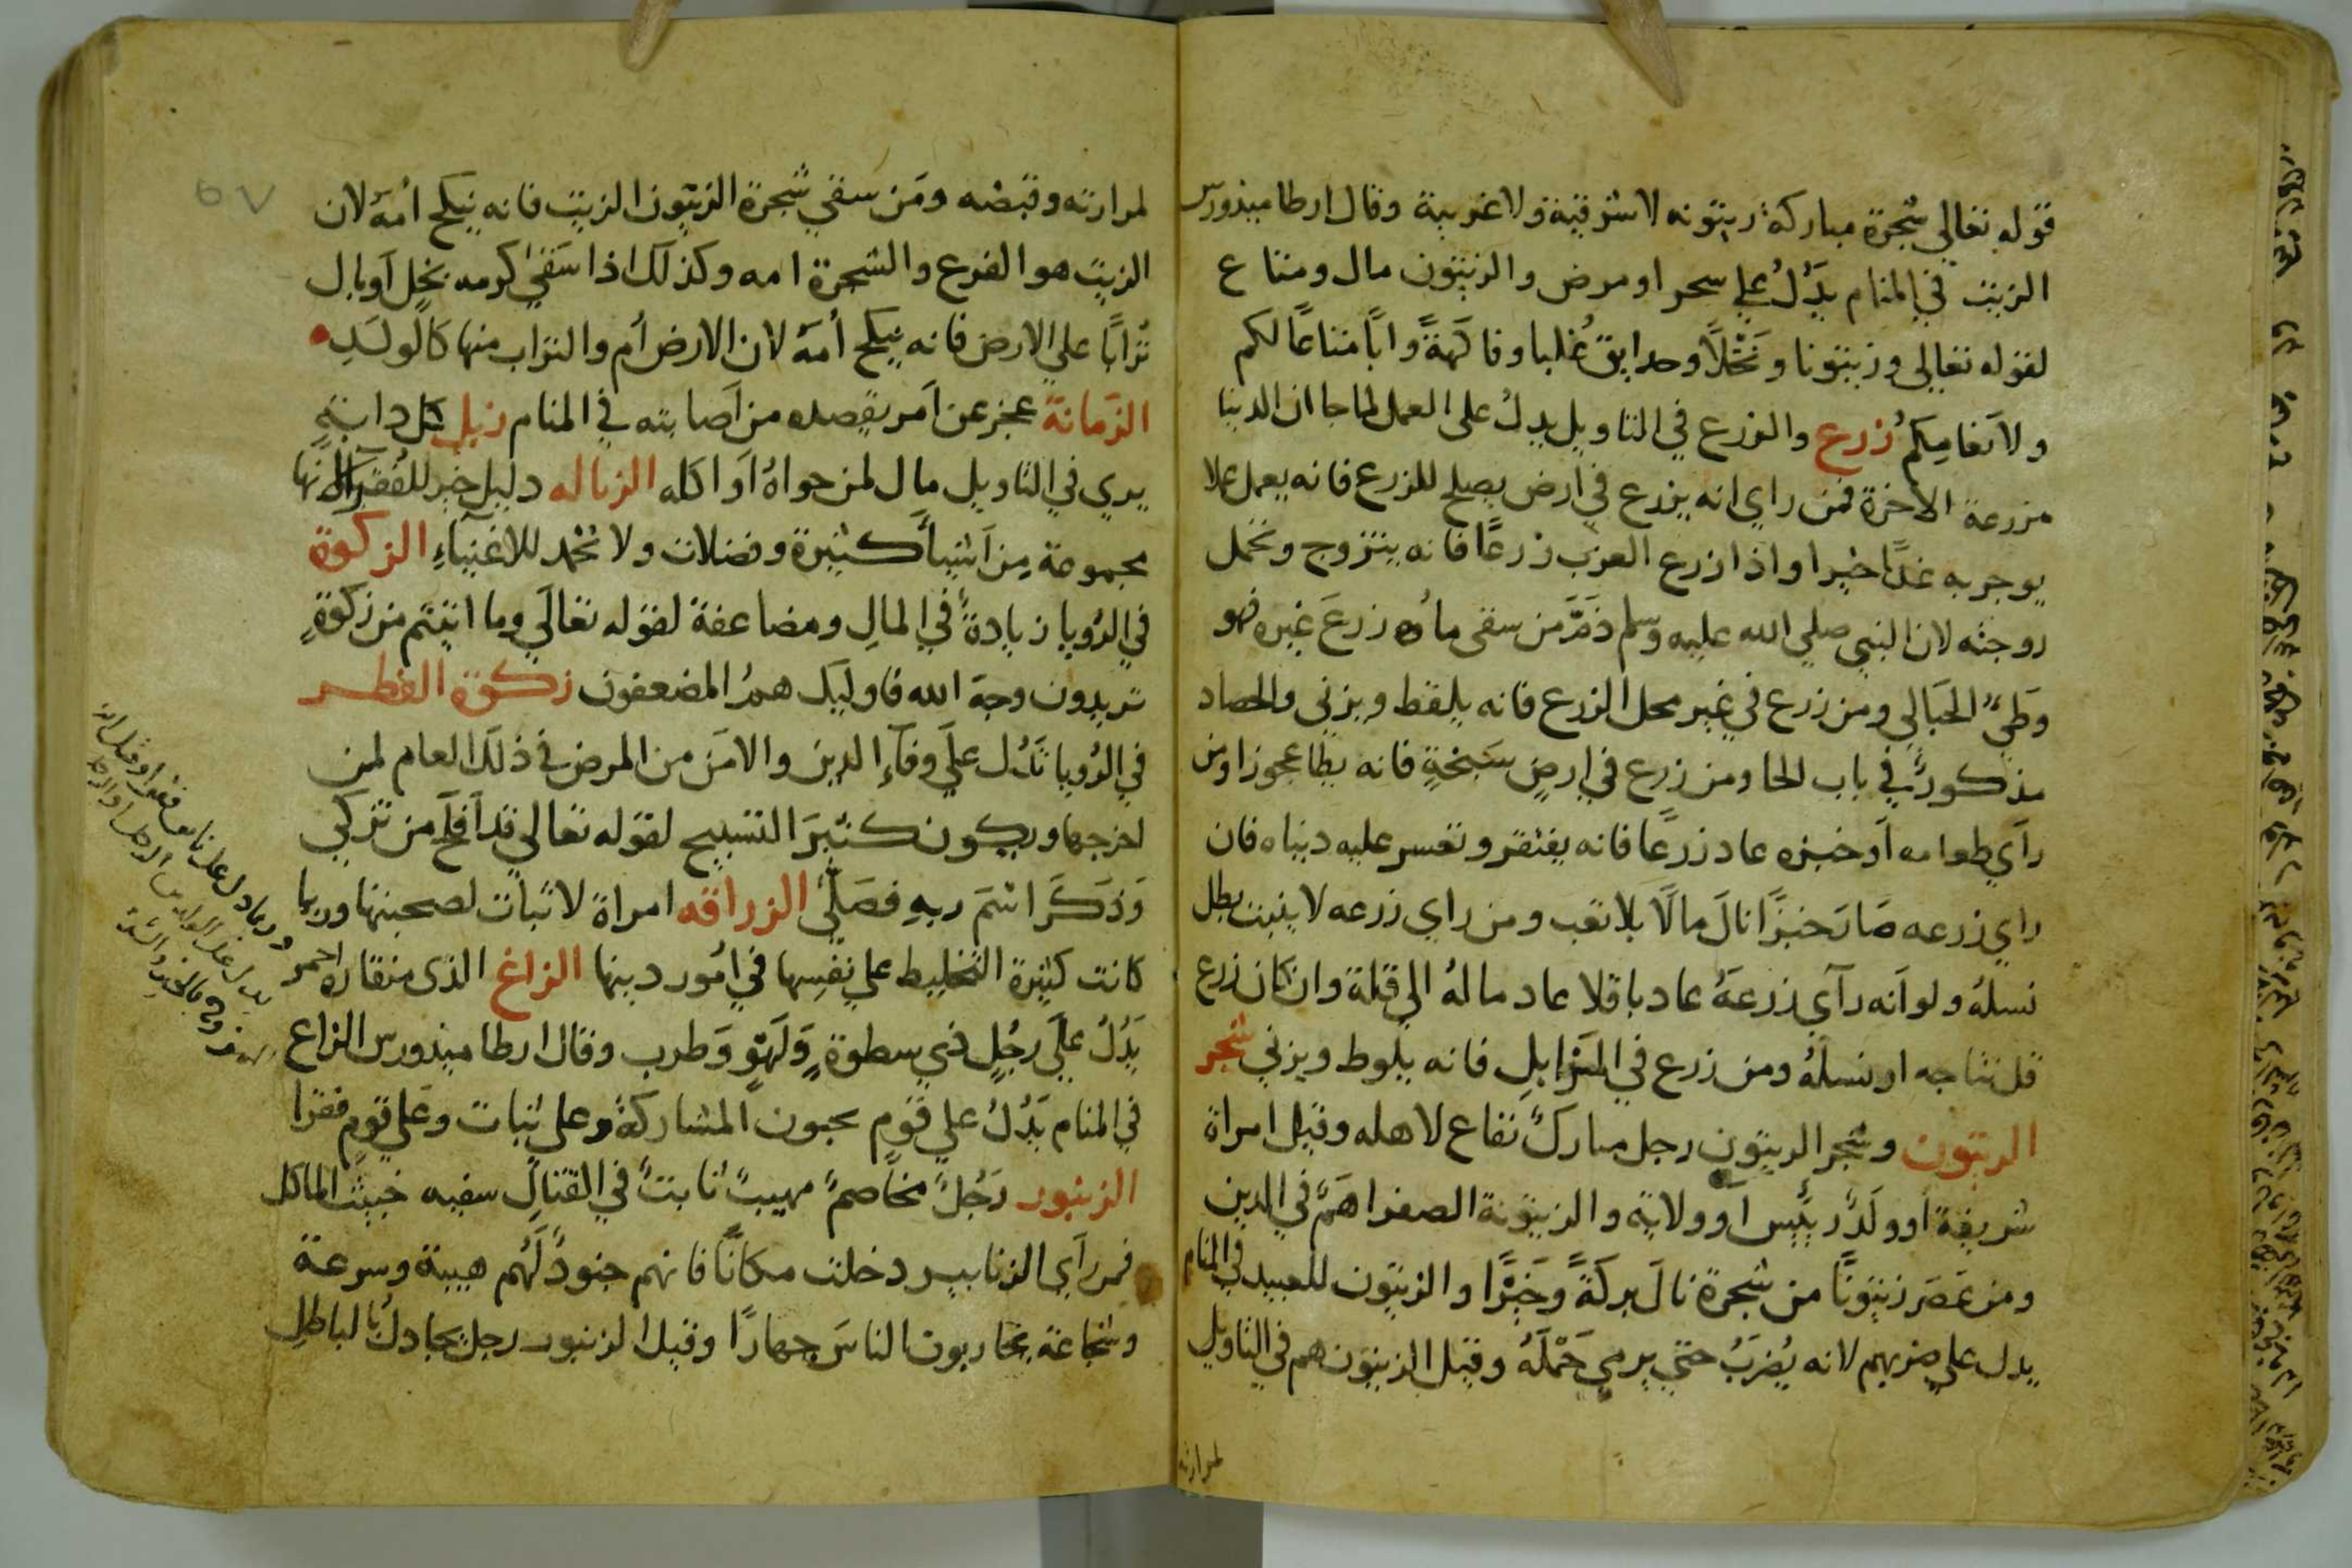 قوله تعالي شجرة مباركة زيتونه لا شرقية ولا غربية وقال ارطاميذورس
الزيت في المنام يَدُلُ علي سحر او مرض والزيتون مال ومتاع
لقوله تعالى وزيتونا ونَخْلاً وحدايق غُلبا وفاكهةً وابًا متاعًا لكم
ولانعامِكم زرع والزرع في التاويل يدلُ على العمل لما جا ان الدنيا
مزرعة الاخرة فمن راي انه يزرع في ارض يصلح للزرع فانه يعمل عملا
يوجر به غدًا خيرا واذا زرع العزب زرعًا فانه يتزوج وتحمل
زوجته لان النبي صلي الله عليه وسلم ذَمَّ من سقى ماؤه زرعَ غيره فهو
وَطيُ الحَبَالي ومن زرع في غير محل الزرع فانه يلقط ويزني والحصاد
مذكورٌ في باب الحا ومن زرع في ارضٍ سَبخةٍ فانه يطا عجوزا ومن
رآي طعامه اَو خبزه عاد زرعًا فانه يفتقر وتعسر عليه دنياه فان
راي زرعه صَارَ خبزًا نالَ مالًا بلا تعب ومن راي زرعه لا ينبت بطل
نسلهُ ولو اَنه رآي زرعَهُ عاد باقلا عاد مالهُ الي قلة وان كان زرع
قل نتاجه او نسلَهُ ومن زرع في المَزَابلِ فانه يلوط ويزني شجر
الزيتون وشجر الزيتون رجل مباركٌ نفاع لاهله وقيل امراة
شريفة اَو ولَدٌ رئيس اَو ولاية والزيتونة الصفرا همٌ في الدين
ومن عَصَر زيتونًا من شجرة نالَ بركةً وخَيْرًا والزيتون للعبيد في المنام
يدل علي ضربهم لانه يُضرَبُ حتي يرمي حَمْلَهُ وقيل الزيتون هم في التاويل
لمرارته
لمرارته وقبضه ومَن سقي شجرة الزيتون الزيت فانه ينكح اُمهُ لان
الزيت هو الفرع والشجرة امه وكذلك اذا سَقي كرمه بخلٍ اَو بال
تُرابًا علي الارض فانه ينكح اُمهُ لان الارض اُم والتراب منها كالولَدِ
الزَمانة عجز عن اَمر يقصده من اَصابته في المنام زبل كل دابةٍ
يري في التاويل مال لمن حواهُ اَو اكله الزباله دليل خير للفُقرآءِ لانها
مجموعة مِن اَشيآء كثيرة وفضلات ولا تُحْمد للاغنيآءِ الزكوة
في الرُويا زيادةٌ في المالِ ومضاعفة لقوله تعالَي وما اتيتم من زكوةٍ
تريدون وجهَ الله فاوليك همُ المضعفون زكوة الفطر
في الرُويا تَدُل علَي وفآءِ الدين والامَن من المرض في ذلك العام لمن
اخرجها ويكون كثيرَ التسبيح لقوله تعالي قد اَفلَح من تزكي
وَذَكَرَ اسْمَ ربهِ فصَلَّي الزراقه امراة لا ثبات لصحبتها وربما
كانت كثيرة التخليط علي نفسِها في اُمور دينها الزاغ الذى منقاره احمر
يَدُلُ علَي رجُلٍ ذي سطوةٍ وَلَهْوٍ وَطرب وقال ارطاميذورس الزاغ
في المنام يَدُلُ علي قومٍ يحبون المشاركة وعلى ثبات وعَلي قومٍ فقرا
الزنبور رَجُلٌ مخاصمٌ مهيبٌ ثابتٌ في القتالِ سفيه خبيثُ الماكل
فمن رَآي الزنابير دخلت مكانًا فانهم جنودٌ لَهُم هيبة وسرعة
وشجاعة يحاربون الناسَ جهارًا وقيل الزنبور رجل يجادلُ بالباطلِ